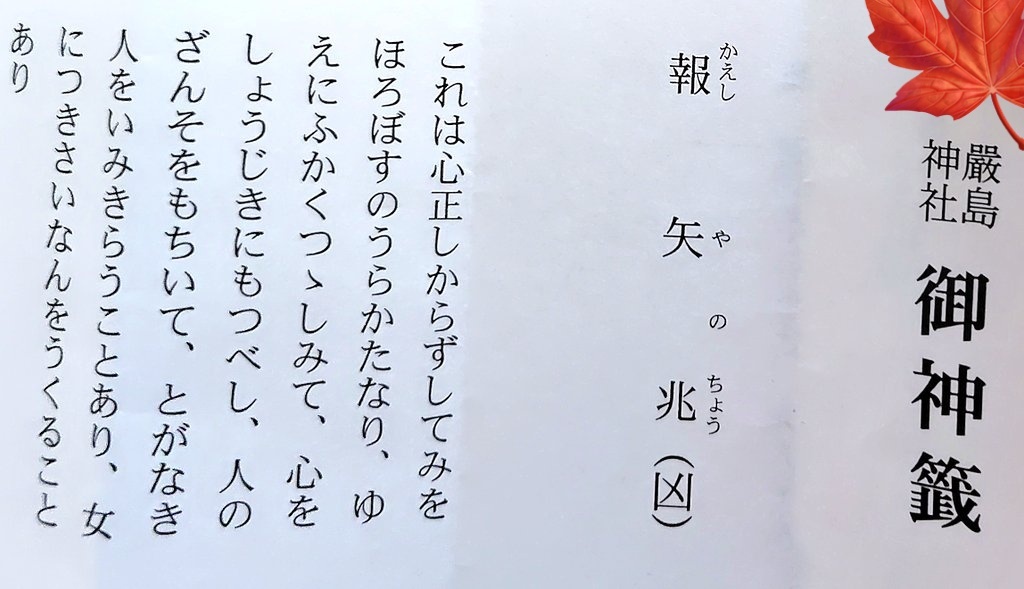 嚴島神社
御神籤
報矢兆(凶)
かえしやのちょう
これは心正しからずしてみを
ほろぼすのうらかたなり、ゆ
えにふかくつゝしみて、心を
しょうじきにもつべし、人の
ざんそをもちいて、とがなき
人をいみきらうことあり、女
につきさいなんをうくること
あり